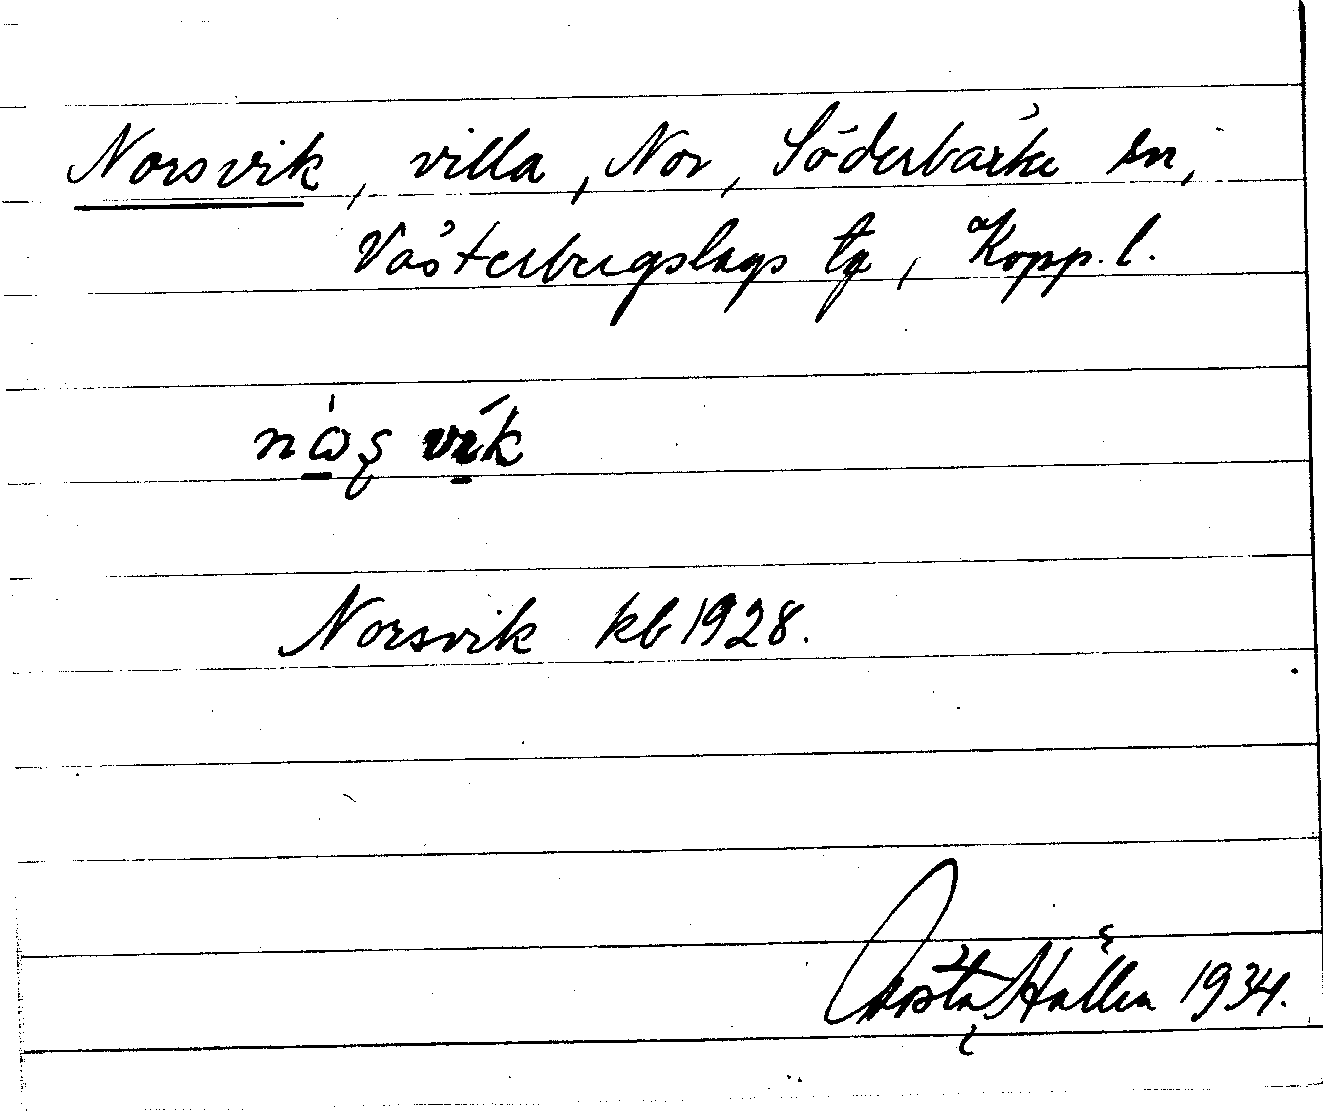 Norsvik, villa, Nor, Söderbärke sn,
Västerbergslags tg, Kopp. l.
Norsvik kb 1928.
Gösta Hallén 1934.